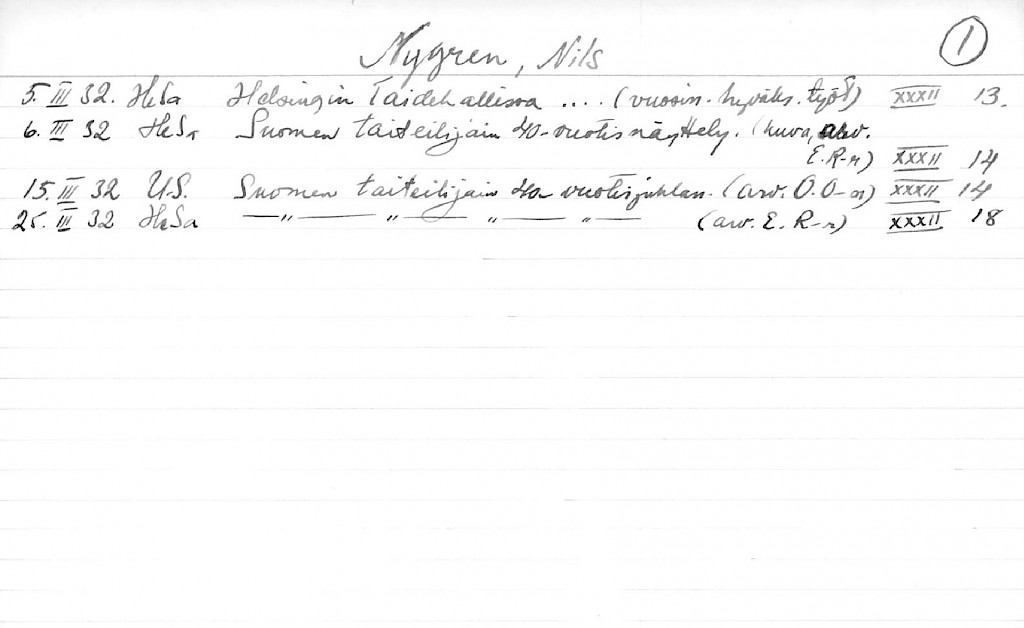 Nygren, Nils 1
5. III 32. HeSa Helsingin Taidehallissa .... (vuosin. hyväks. työt) XXXII 13.
6. III 32 HeSa Suomen taiteilijain 40-vuotisnäyttely. (kuva, arv.
E. R-r) XXXII 14
15. III 32 U.S. Suomen taiteilijain 40-vuotisjuhlan. (arv. O. O-n) XXXII 14
25. III 32 HeSa —〃— —〃— —〃— —〃— (arv. E. R-r) XXXII 18